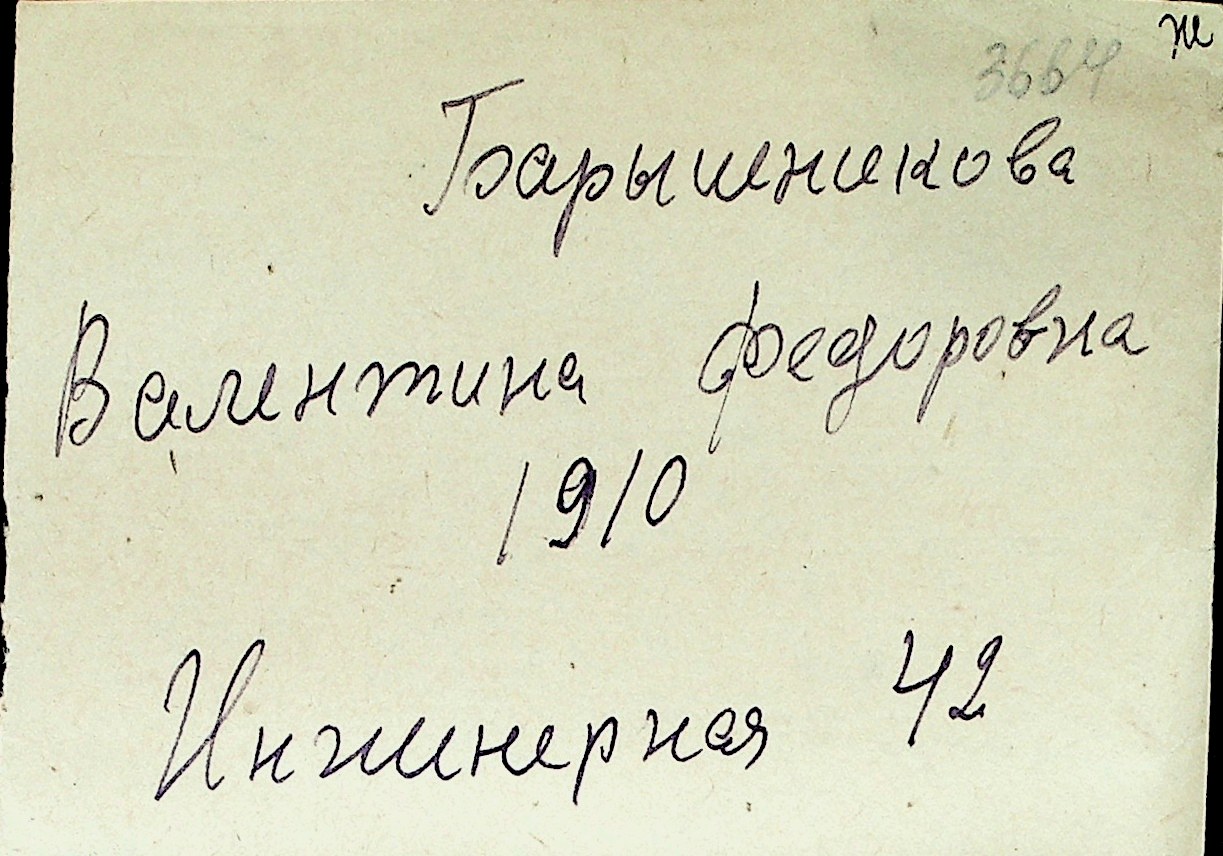 ж
3664
Барышникова
Валентина Федоровна
1910
Инжинерная 42